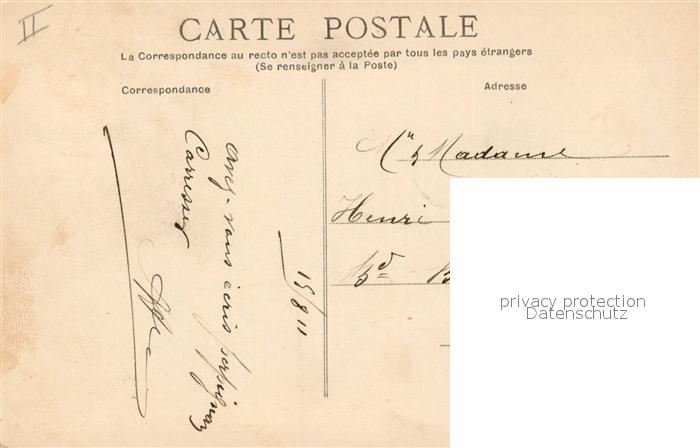 II
CARTE POSTALE
La Correspondance au recto n'est pas acceptée par tous les pays étrangers
(Se renseigner à la Poste)
Correspondance
Adresse
15/8 11
avez-vous écris Perpignan
Carresses
Mr & Madame
Henri
Bd B
privacy protection
Datenschutz